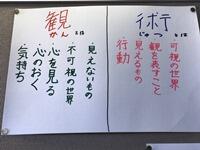 術とは
じゅつ
可視の世界
観を表すこと
見えるもの
行動
観とは
かん
見えないもの
・不可視の世界
・心を見る
・心のおく
気持ち